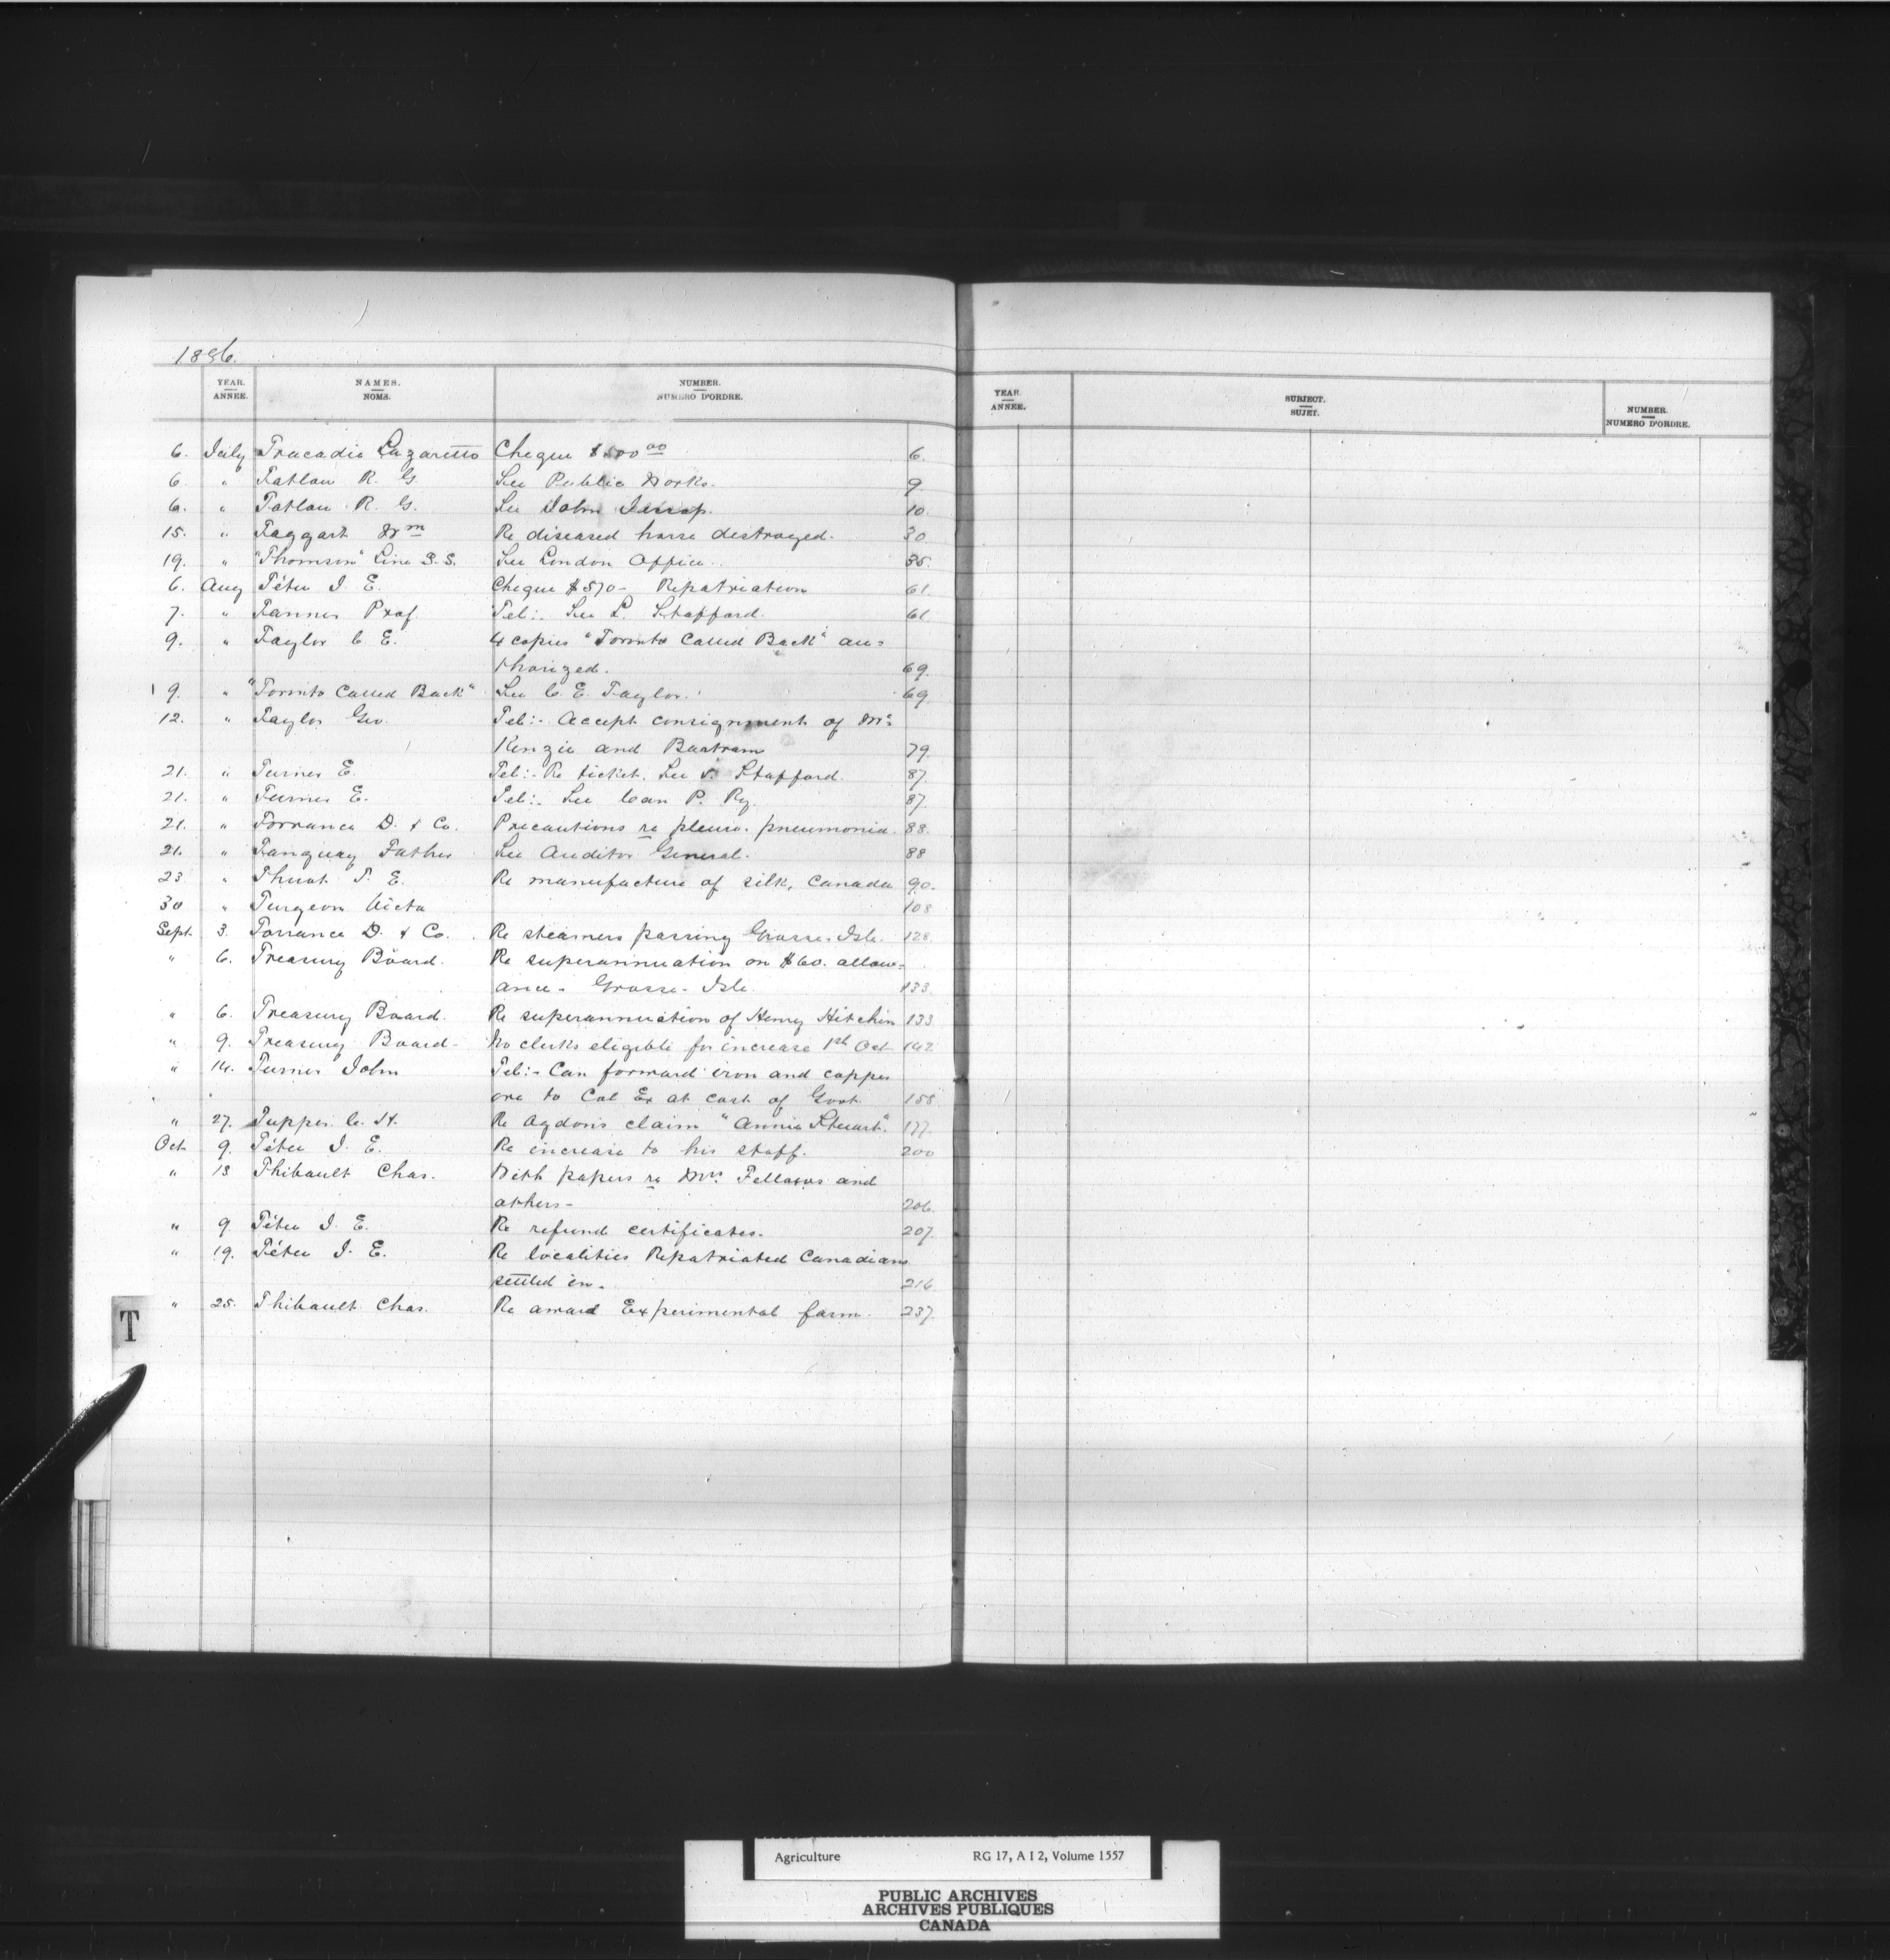 1886.
YEAR. NAMES. NUMBER.
ANNEE. NOMS. NUMERO D'ORDRE.
YEAR. SUBJECT. NUMBER.
ANNEE. SUJET. NUMERO D'ORDRE.
6. July Tracadie Lazaretto Cheque $500 00 6.
6. " Tatlow R. G. See Public Works. 9.
6. " Tatlow R. G. See John Jessop. 10.
15. " Taggart Wm Re diseased horse destroyed. 30
19. " "Thomson" Line S.S. See London Office. 35.
6. Aug Têtu J. E. Cheque $570 - Repatriation 61.
7. " Tanner Prof. Tel:- See L. Stafford. 61
9. " Taylor C. E. 4 copies "Toronto Called Back" au=
thorized. 69.
9. " "Toronto Called Back" See C. E. Taylor. 69
12. " Taylor Geo. Tel:- Accept consignment of Mc
Kenzie and Bartram 79.
21. " Turner E. Tel:- Re ticket. See Stafford. 87.
21. " Turner E. Tel:- See Can P. Ry. 87.
21. " Torrance D. & Co. Precautions re pleuro. pneumonia. 88.
21. " Tanguay Father See Auditor General. 88
23. " Re manufacture of silk, Canada 90.
30 " Turgeon Victa 108
Sept. 3. Torrance D. & Co. Re steamers passing Grosse-Isle. 128.
" 6. Treasury Board. Re superannuation on $60. allow=
ance - Grosse-Isle. 133.
" 6. Treasury Board. Re superannuation of Henry Hitchin 133
" 9. Treasury Board - No clerks eligible for increase 1st Oct 142
" 14. Turner John Tel:- Can forward iron and copper
ore to Col Ex at cost of Govt. 158.
" 27. Tupper C. H. Re claim "Annie Stewart". 177.
Oct 9. Têtu J. E. Re increase to his staff. 200
" 13 Thibault Chas. With papers re Mrs. Fellows and
others - 206.
" 9 Têtu J. E. Re refund certificates. 207.
" 19. Têtu J. E. Re localities Repatriated Canadians
settled in. 216
" 25. Thibault Chas. Re award Experimental farm. 237.
T
Agriculture RG 17, A I 2, Volume 1557
PUBLIC ARCHIVES
ARCHIVES PUBLIQUES
CANADA